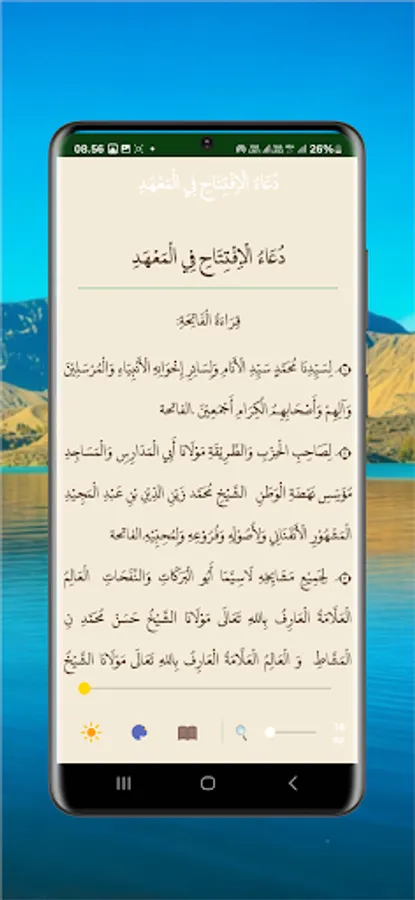 08.56
26%
دُعَاءُ الْاِفْتِتَاحِ فِي الْمَعْهَدِ
دُعَاءُ الْاِفْتِتَاحِ فِي الْمَعْهَدِ
قِرَاءَةُ الْفَاتِحَةِ:
لِسَيِّدِنَا مُحَمَّدٍ سَيِّدِ الْأَنَامِ وَلِسَائِرِ إِخْوَانِهِ الْأَنْبِيَاءِ وَالْمُرْسَلِيْنَ
وَآلِهِمْ وَأَصْحَابِهِمُ الْكِرَامِ أَجْمَعِيْنَ .الفاتحة
لِصَاحِبِ الْحِزْبِ وَالطَّرِيْقَةِ مَوْلَانَا أَبِي الْمَدَارِسِ وَالْمَسَاجِدِ
مُؤَسِّسِ نَهْضَةِ الْوَطَنِ الشَّيْخِ مُحَمَّد زَيْنِ الدِّيْنِ بْنِ عَبْدِ الْمَجِيْدِ
الْمَشْهُوْرِ الْأَنْفَنَانِي وَلِأُصُوْلِهِ وَفُرُوْعِهِ وَلِمُحِبِّيْهِ.الفاتحة
لِجَمِيْعِ مَشَايِخِهِ لَاسِيَّمَا أَبُو الْبَرَكَاتِ وَالنَّفَحَاتِ الْعَالِمُ
الْعَلَّامَةُ الْعَارِفُ بِاللهِ تَعَالَى مَوْلَانَا الشَّيْخُ حَسَنْ مُحَمَّد نِ
الْمَشَّاطِ وَ الْعَالِمُ الْعَلَّامَةُ الْعَارِفُ بِاللهِ تَعَالَى مَوْلَانَا الشَّيْخُ